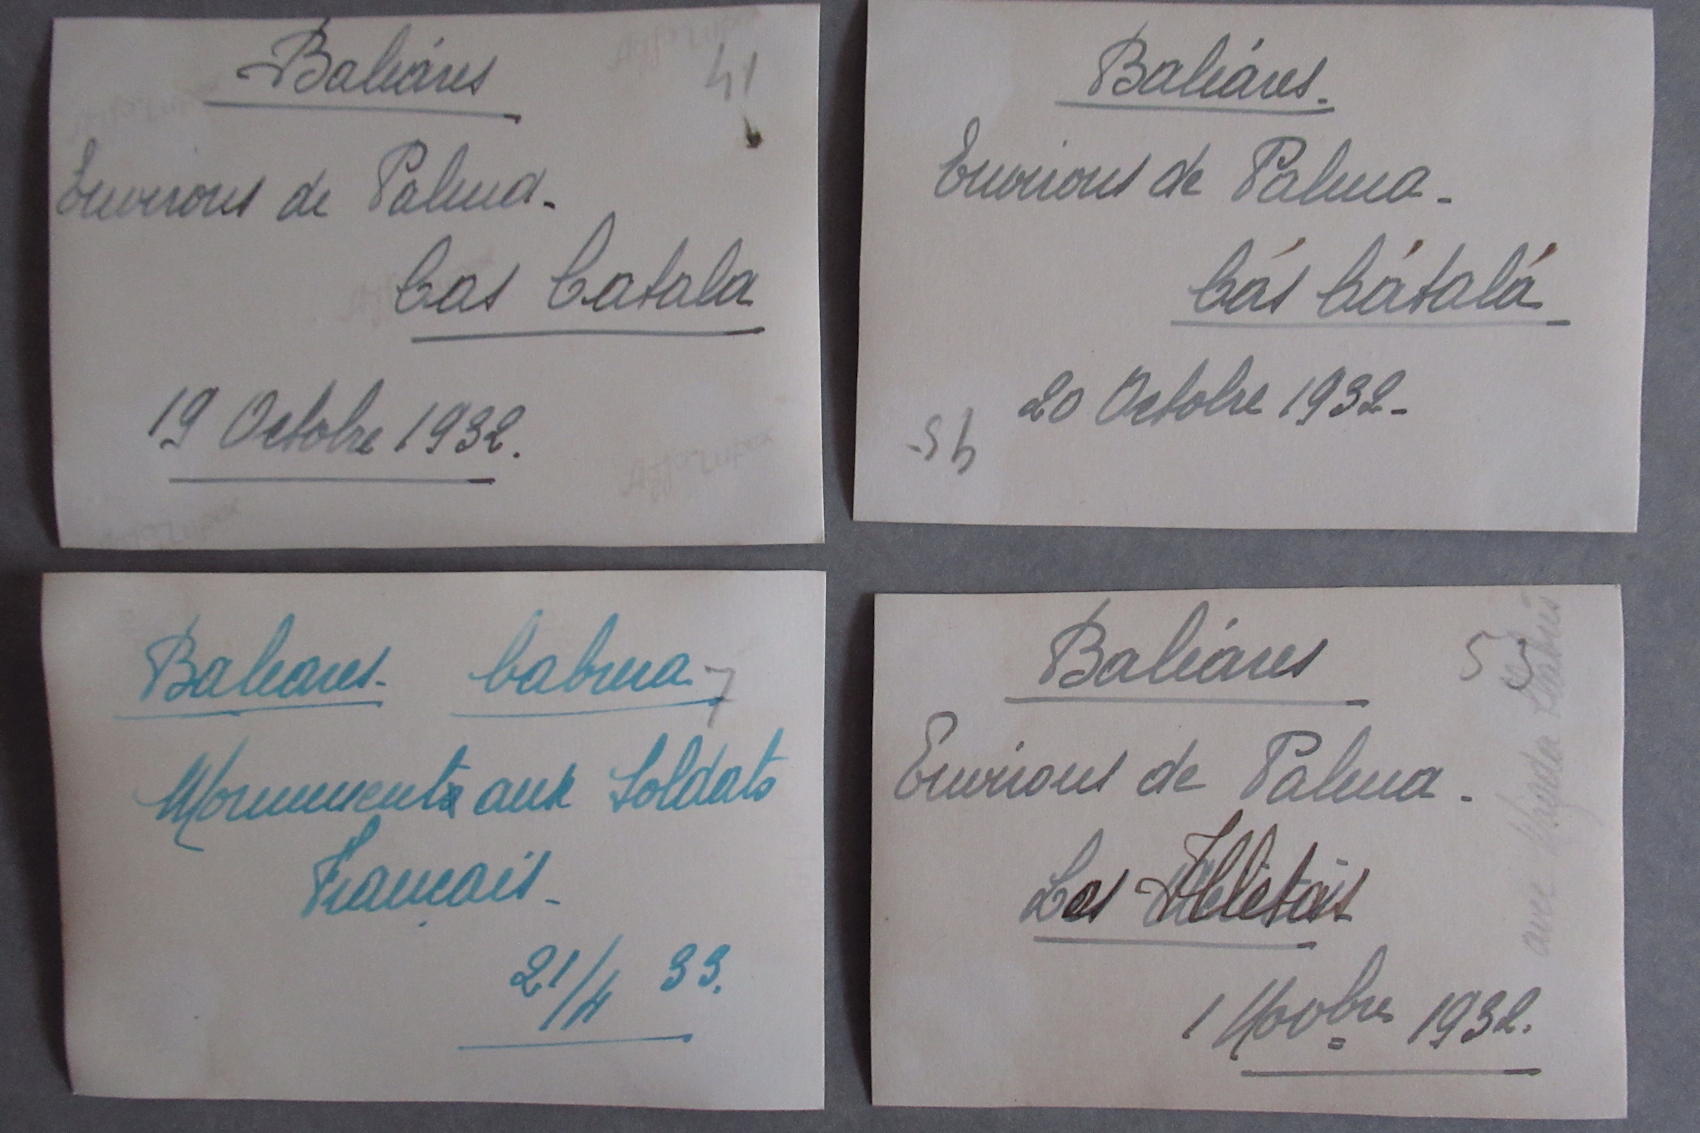 Baléares
41
Environs de Palma.
Cas Catala
19 Octobre 1932.
Baléares.
Environs de Palma.
Cás Cátalá
20 Octobre 1932.
Baleares. Cabrera
7
Monuments aux Soldats
Français.
21/4 33.
Baléares
Environs de Palma.
Las Illetas
1 Novbre 1932.
avec Magda